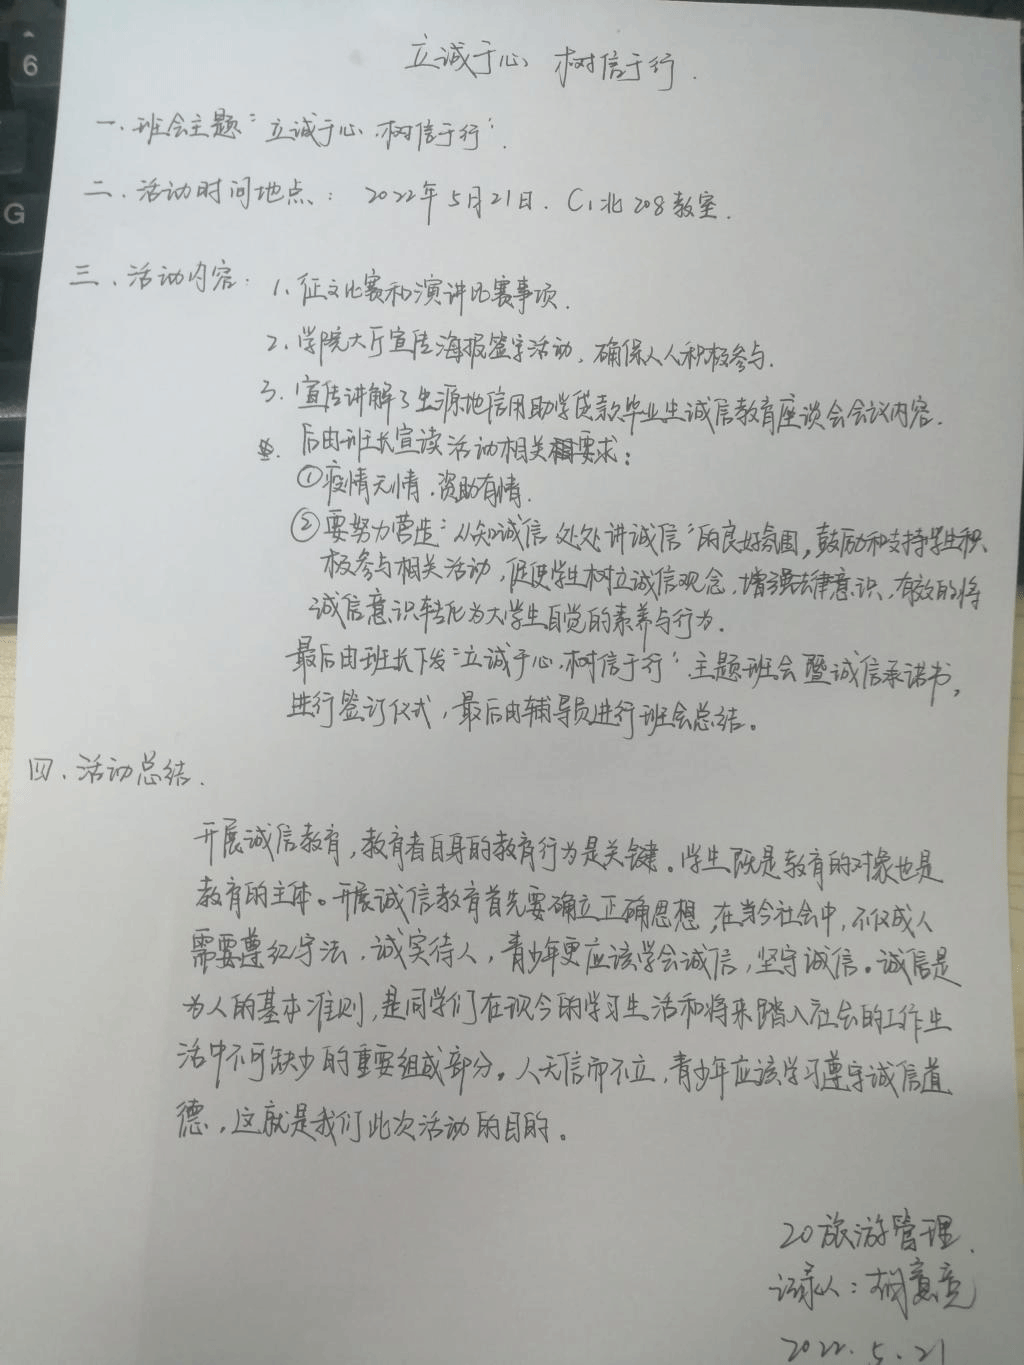 6
G
立诚于心 树信于行.
一.班会主题"立诚于心.树信于行".
二.活动时间地点: 2022年5月21日. C1北208教室.
三.活动内容: 1.征文比赛和演讲比赛事项.
2.学院大厅宣传海报签字活动,确保人人积极参与.
3.宣传讲解了生源地信用助学贷款毕业生诚信教育座谈会会议内容.
后由班长宣读活动相关要求:
①疫情无情.资助有情.
②要努力营造"从知诚信 处处讲诚信"的良好氛围,鼓励和支持学生积
极参与相关活动,促使学生树立诚信观念,增强法律意识,有效的将
诚信意识转化为大学生自觉的素养与行为.
最后由班长下发"立诚于心.树信于行".主题班会暨诚信承诺书,
进行签订仪式,最后由辅导员进行班会总结。
四.活动总结.
开展诚信教育,教育者自身的教育行为是关键。学生既是教育的对象也是
教育的主体。开展诚信教育首先要确立正确思想,在当今社会中,不仅成人
需要遵纪守法,诚实待人,青少年更应该学会诚信,坚守诚信。诚信是
为人的基本准则,是同学们在现今的学习生活和将来踏入社会的工作生
活中不可缺少的重要组成部分。人无信而不立,青少年应该学习遵守诚信道
德,这就是我们此次活动的目的。
20旅游管理.
记录人:胡意亮
2022.5.21